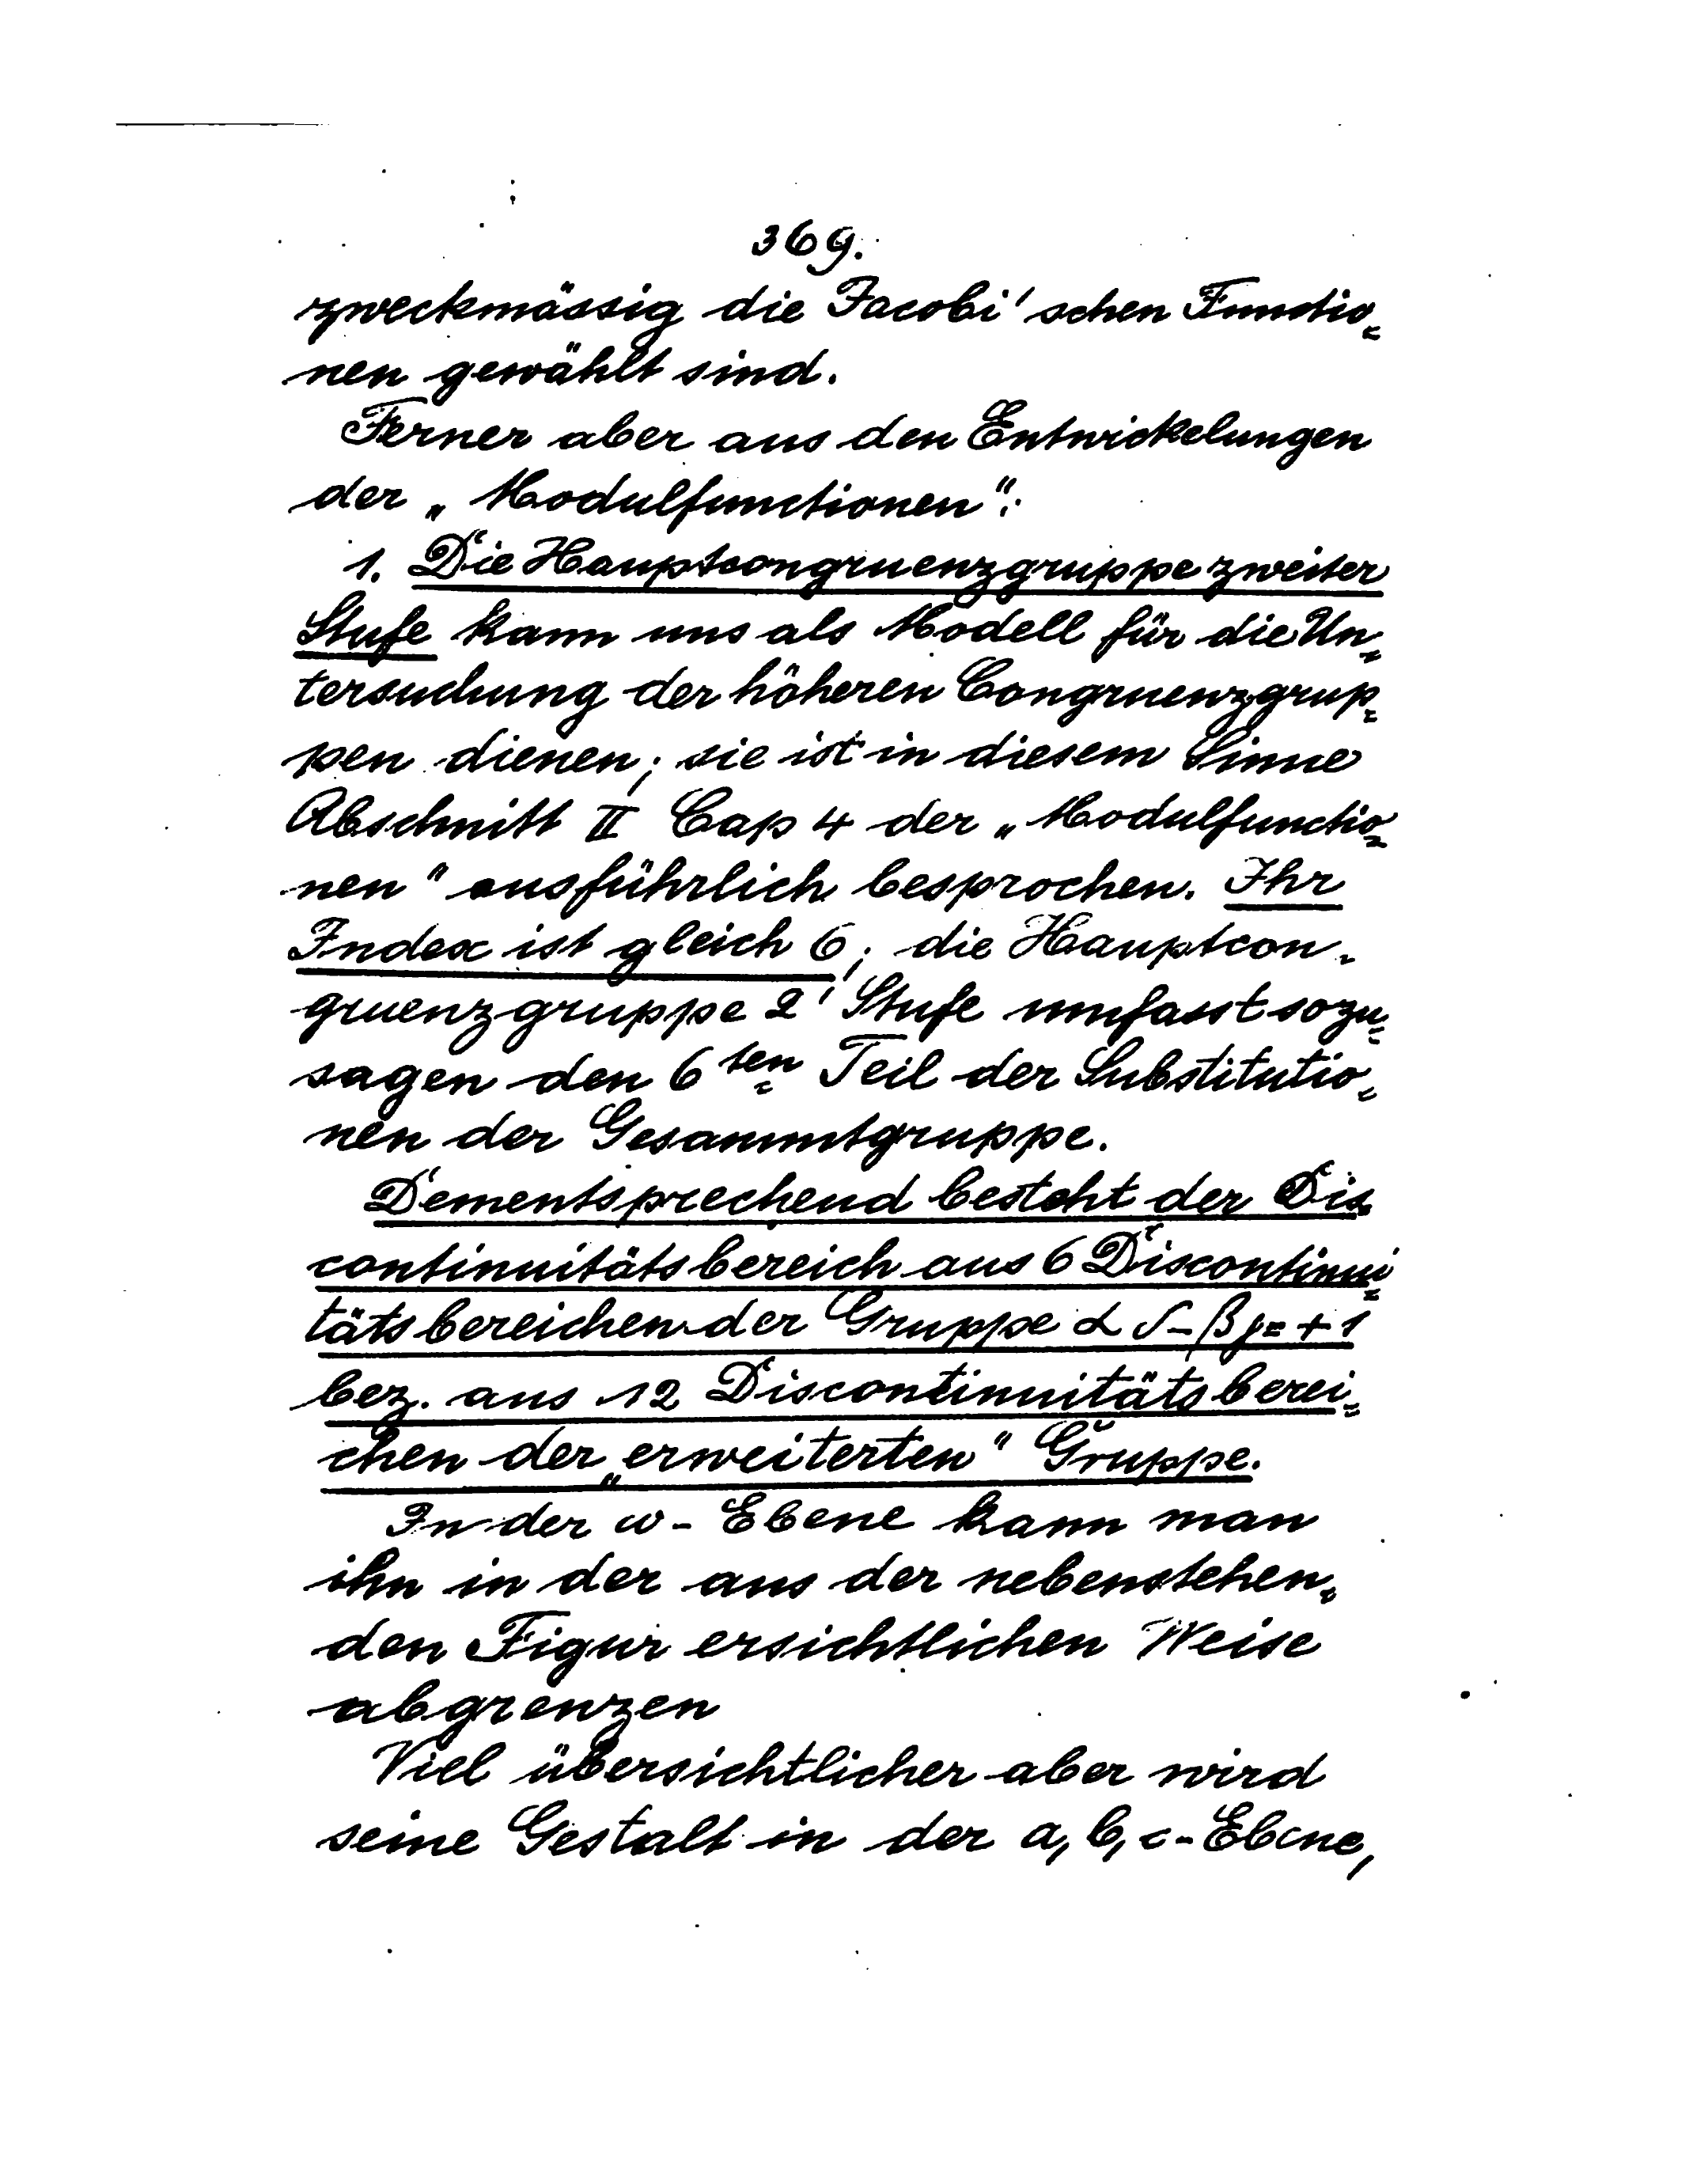 369.
zweckmässig die Jacobi'schen Functio=
nen gewählt sind.
Ferner aber aus den Entwickelungen
der „Modulfunctionen":
1. Die Hauptcongruenzgruppe zweiter
Stufe kann uns als Modell für die Un=
tersuchung der höheren Congruenzgrup=
pen dienen; sie ist in diesem Sinne
Abschnitt II Cap 4 der „Modulfunctio=
nen" ausführlich besprochen. Ihr
Index ist gleich 6; die Hauptcon-
gruenzgruppe 2' Stufe umfasst sozu=
sagen den 6ten Teil der Substitutio=
nen der Gesammtgruppe.
Dementsprechend besteht der Dis=
continuitätsbereich aus 6 Discontinui=
tätsbereichen der Gruppe αδ-βγ=+1
bez. aus 12 Discontinuitätsberei=
chen der „erweiterten" Gruppe.
In der ω-Ebene kann man
ihn in der aus der nebenstehen=
den Figur ersichtlichen Weise
abgrenzen
Viel übersichtlicher aber wird
seine Gestalt in der a, b, c-Ebene,